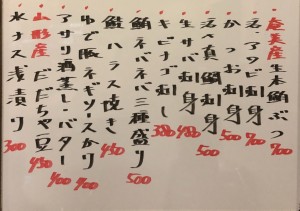 奄美産生本鮪ぶつ 700
活〆アワビ刺身 700
かつお刺身 500
活〆真鯛刺身 500
生サバ刺身 480
キビナゴ刺し 380
鮪ネバネバ三種盛り 500
鮭ハラス焼き 450
ゆで豚ネギソースかけ 400
アサリ酒蒸し・バター 400
山形産だだちゃ豆 450
水ナス浅漬け 300